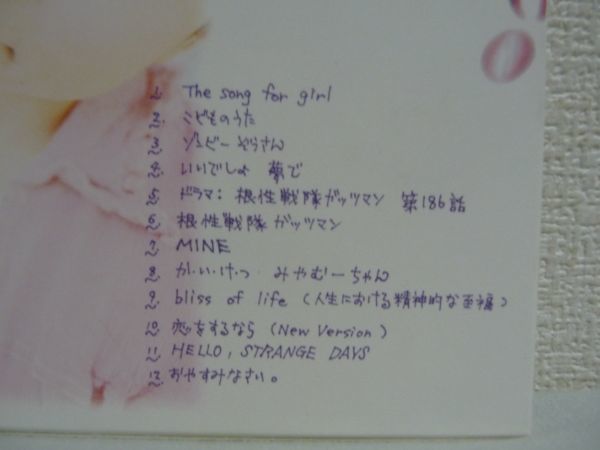 1. The song for girl
2. こどものうた
3. ゾンビーぞうさん
4. いいでしょ 夢で
5. ドラマ：根性戦隊ガッツマン 第186話
6. 根性戦隊ガッツマン
7. MINE
8. か・い・け・つ みやむーちゃん
9. bliss of life (人生における精神的な至福)
10. 恋をするなら (New Version)
11. HELLO, STRANGE DAYS
12. おやすみなさい。